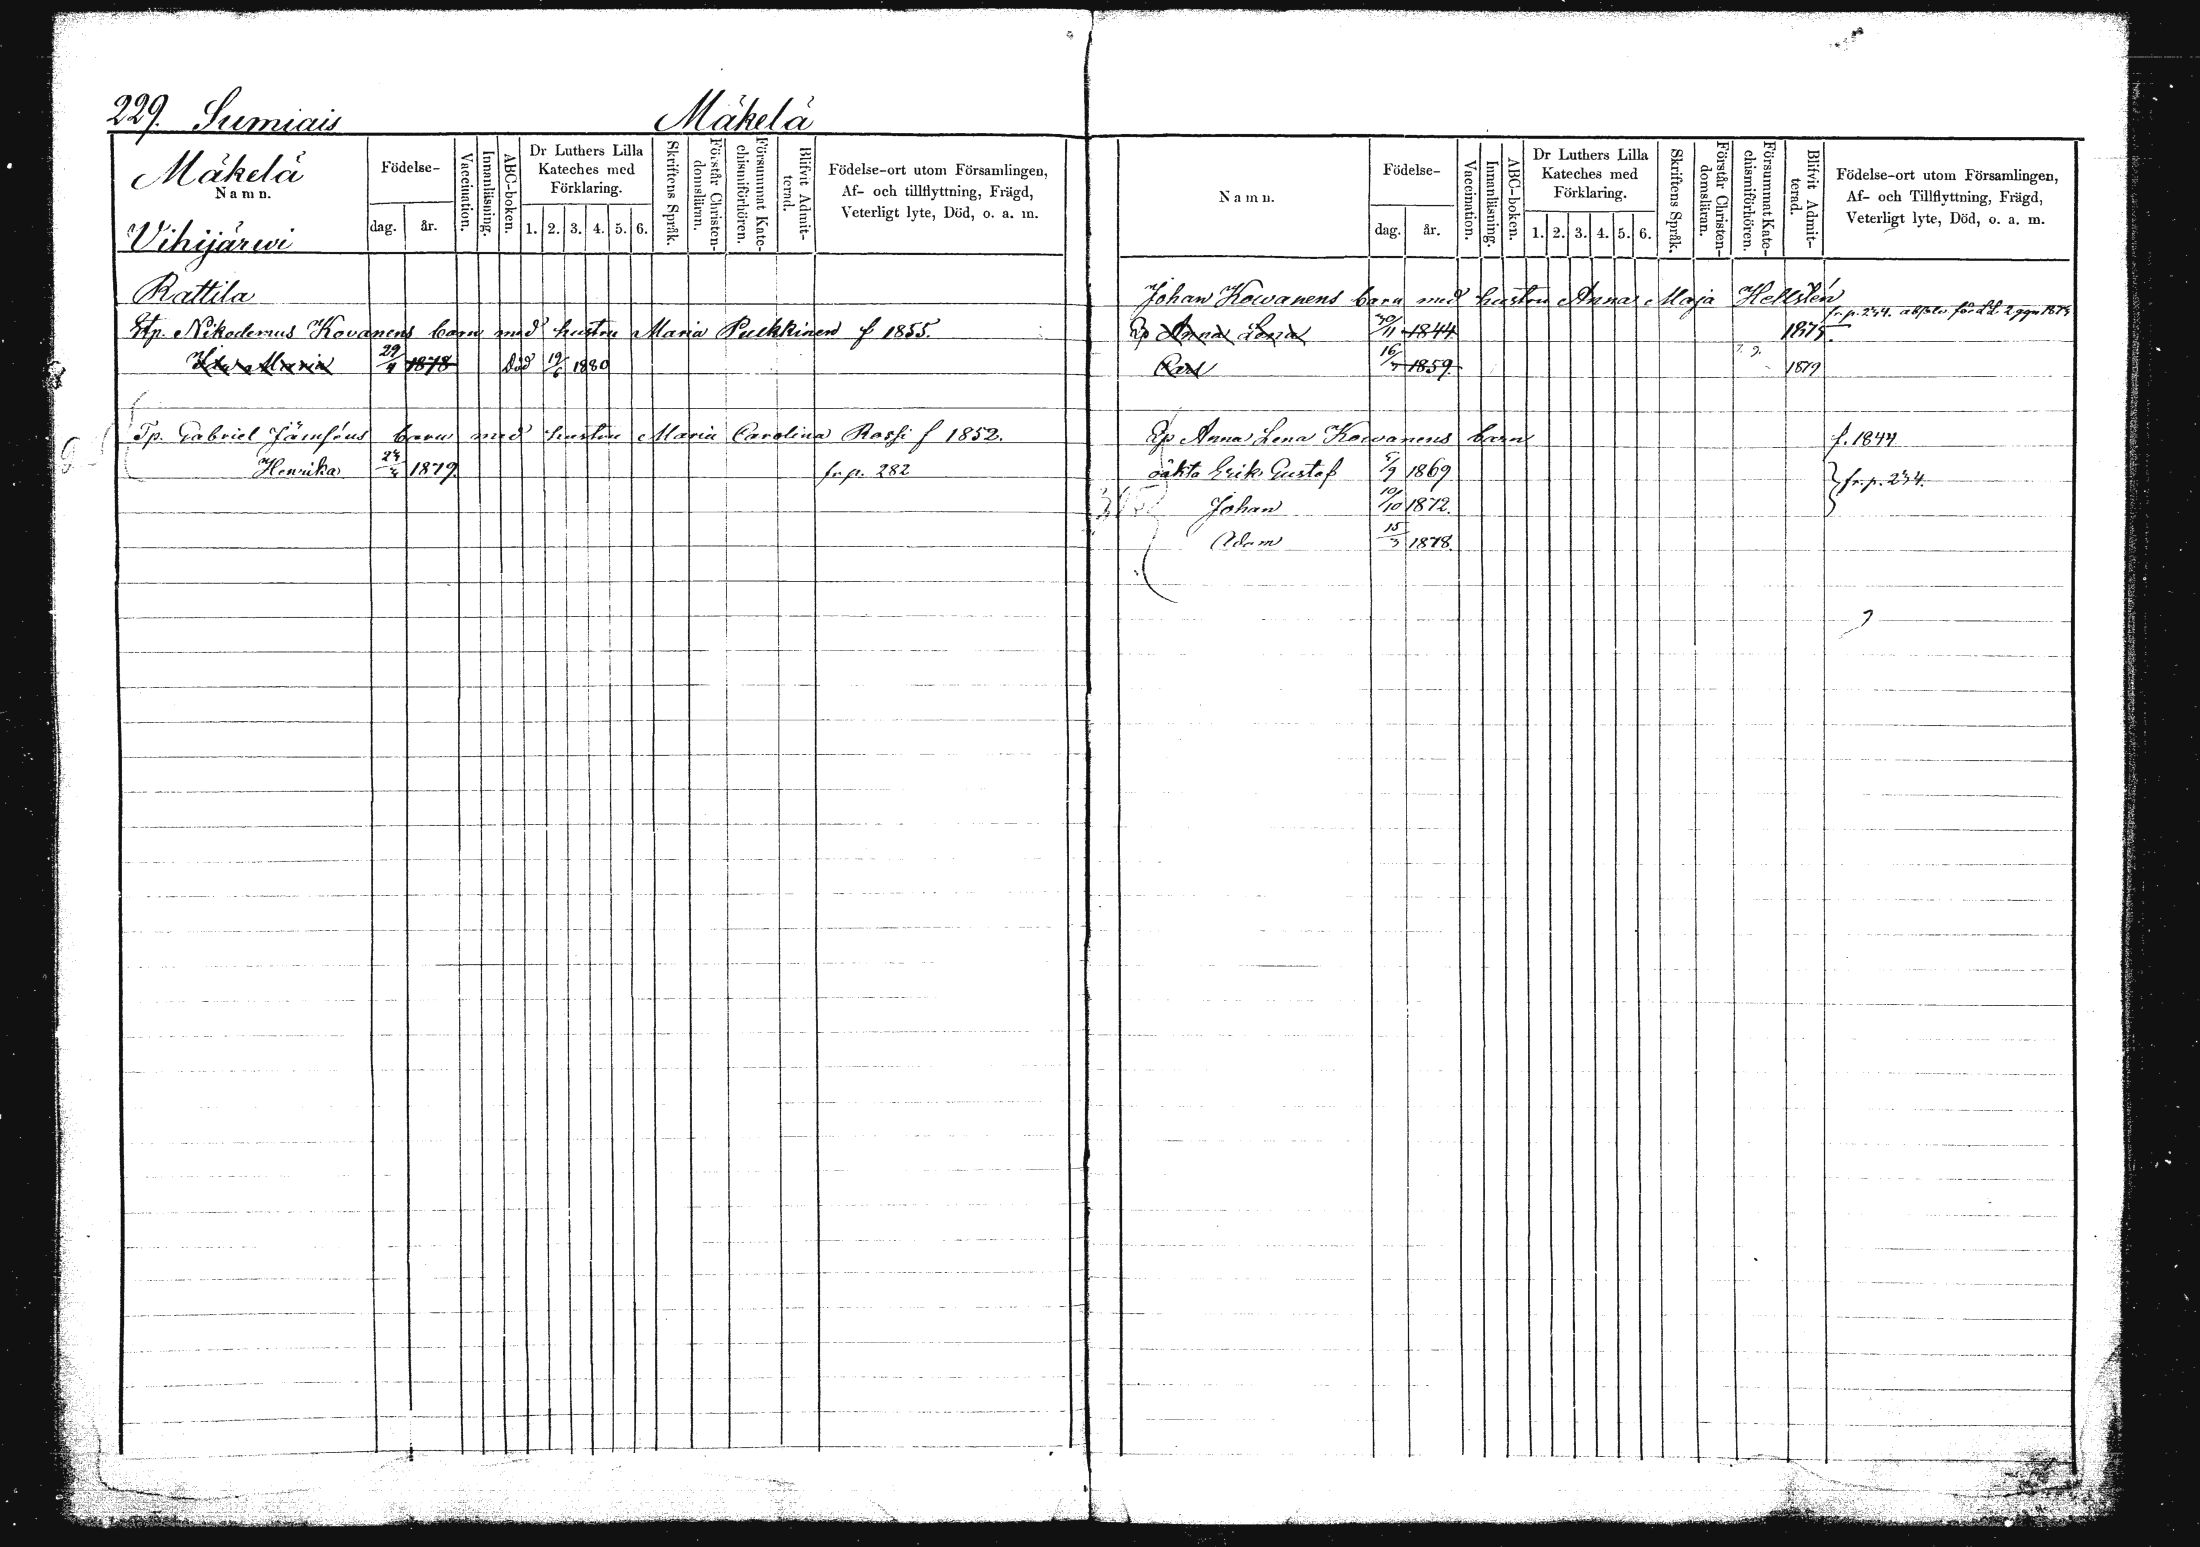 229. Sumiais Mäkelä
Mäkelä
Namn.
Wihijärwi
Födelse-
dag. år.
Vaccination.
Innanläsning.
ABC-boken.
Dr Luthers Lilla Kateches med Förklaring.
1. 2. 3. 4. 5. 6.
Skriftens Språk.
Förstår Christendomsläran.
Försummat Katechismiförhören.
Blifvit Admitterad.
Födelse-ort utom Församlingen,
Af- och tillflyttning, Frägd,
Veterligt lyte, Död, o. a. m.
Rattila
Nikodemus Kovanens barn med hustru Maria Pulkkinen f 1855.
Maria 29/4 1878 Död 19/6 1880
Tp. Gabriel Jämséns barn med hustru Maria Carolina Rossi f 1852.
Henrika 1879. fr. p. 282
Namn.
Födelse-
dag. år.
Vaccination.
Innanläsning.
ABC-boken.
Dr Luthers Lilla
Kateches med
Förklaring.
1. 2. 3. 4. 5. 6.
Skriftens Språk.
Förstår Christendomsläran.
Försummat Katechismiförhören.
Blifvit Admitterad.
Födelse-ort utom Församlingen,
Af- och Tillflyttning, Frägd,
Veterligt lyte, Död, o. a. m.
Johan Kowanens barn med hustru Anna Maja Hellstén
fr. p. 234.
Anna Lena 30/11 1844 1875.
Carl 1859. 1879
Anna Lena Kowanens barn f. 1844
oäkta Erik Gustaf 1869
fr. p. 234.
Johan 10/10 1872.
Adam 15/3 1878.